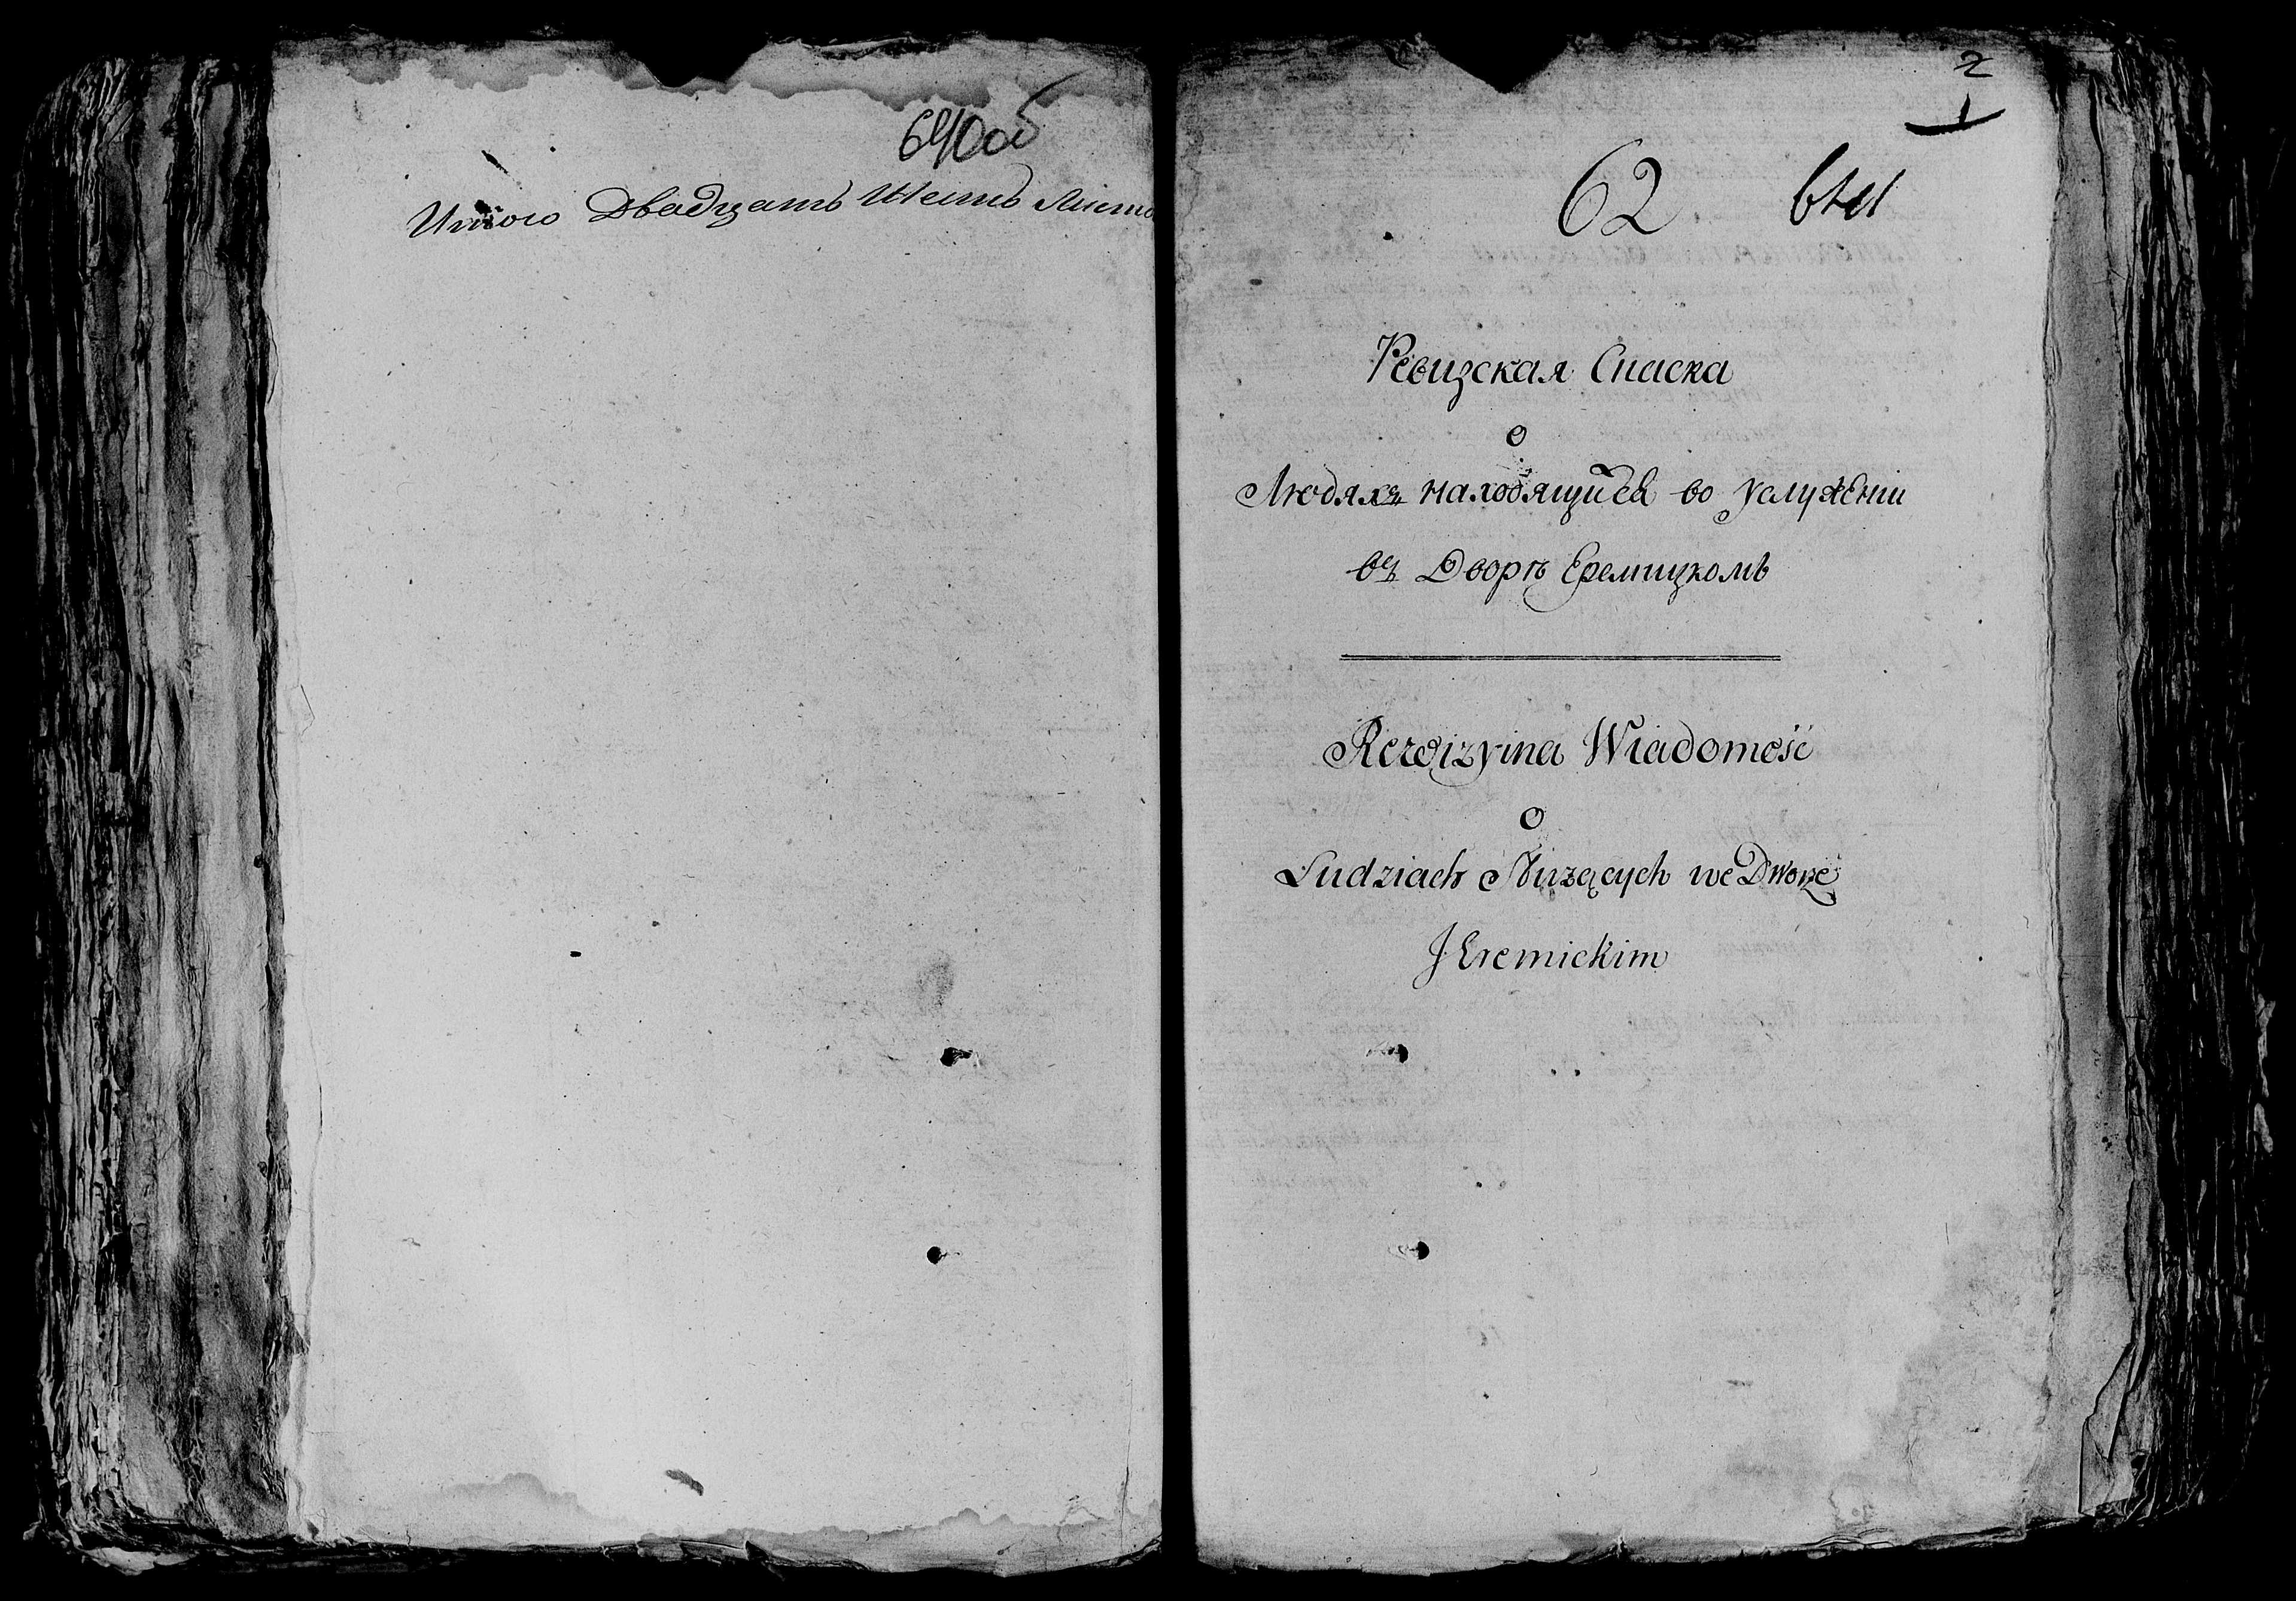 640об
Итого Двадцать Шесть Листо
2
1
62 641
Ревизская Сказка
о
Людяхъ находящийся во услужении
въ Дворѣ Еремицкомъ
Rewizyina Wiadomość
o
Ludziach Służących we Dworze
JEremickim